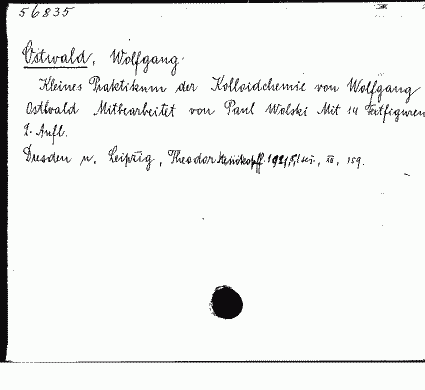 56835
Ostwald, Wolfgang.
Kleines Praktikum der Kolloidchemie von Wolfgang
Ostwald Mitbearbeitet von Paul Wolski Mit 14 Textfiguren
2. Aufl.
Dresden u. Leipzig, Theodor Steinkopff. 1921, XII, 159.